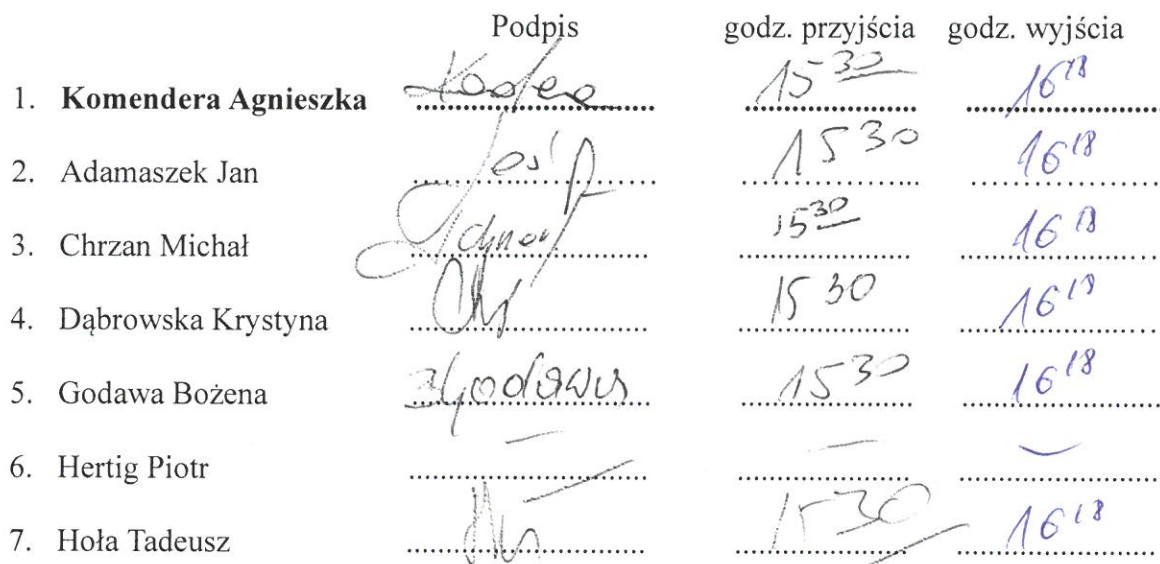 Podpis godz. przyjścia godz. wyjścia
1. Komendera Agnieszka 15 30 16 18
2. Adamaszek Jan 15 30 16 18
3. Chrzan Michał 15 30 16 18
4. Dąbrowska Krystyna 15 30 16 18
5. Godawa Bożena BGodawa 15 30 16 18
6. Hertig Piotr — — —
7. Hoła Tadeusz 15 30 16 18